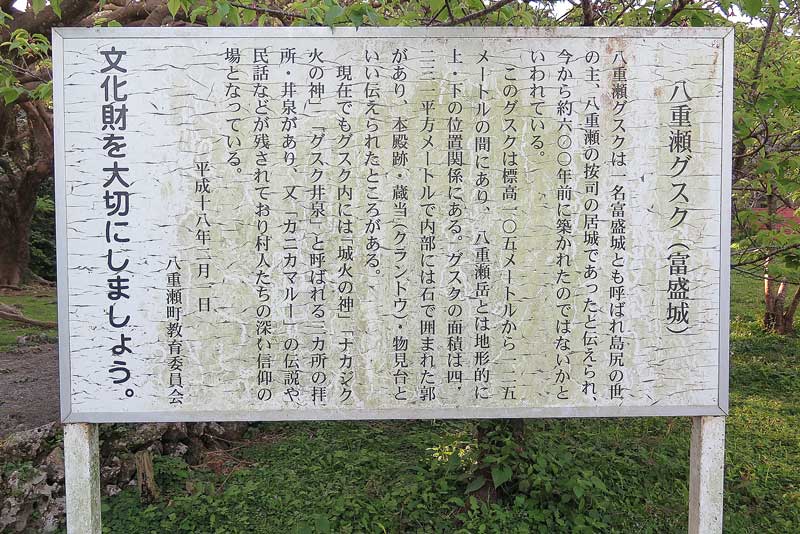 八重瀬グスク（富盛城）
八重瀬グスクは一名富盛城とも呼ばれ島尻の世
の主、八重瀬の按司の居城であったと伝えられ、
今から約六〇〇年前に築かれたのではないかと
いわれている。
このグスクは標高一〇五メートルから一二五
メートルの間にあり、八重瀬岳とは地形的に
上・下の位置関係にある。グスクの面積は四、
二三一平方メートルで内部には石で囲まれた郭
があり、本殿跡・蔵当（クラントウ）・物見台と
いい伝えられたところがある。
現在でもグスク内には「城火の神」「ナカジク
火の神」「グスク井泉」と呼ばれる三カ所の拝
所・井泉があり、又「カニカマルー」の伝説や
民話などが残されており村人たちの深い信仰の
場となっている。
平成十八年二月一日
八重瀬町教育委員会
文化財を大切にしましょう。